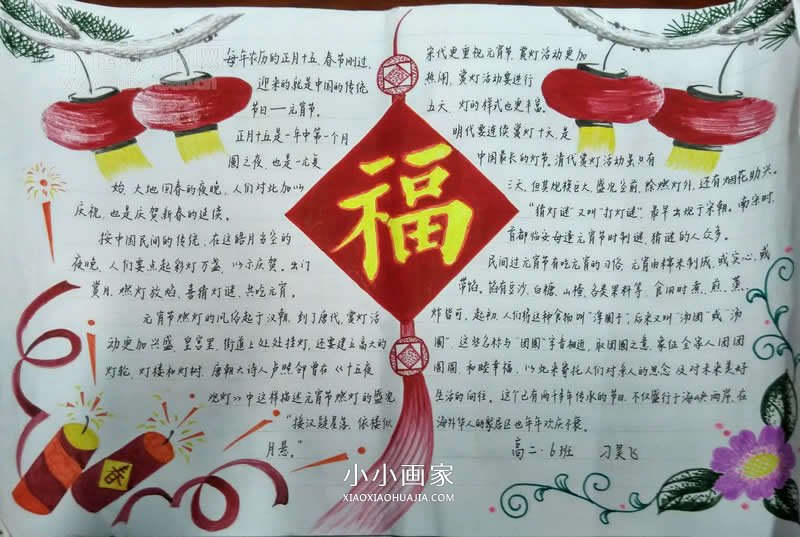 每年农历的正月十五,春节刚过,
迎来的就是中国的传统
节日——元宵节。
正月十五是一年中第一个月
圆之夜,也是一元复
始,大地回春的夜晚,人们对此加以
庆祝,也是庆贺新春的延续。
按中国民间的传统,在这皓月当空的
夜晚,人们要点起彩灯万盏,以示庆贺。出门
赏月、燃灯放焰、喜猜灯谜、共吃元宵。
元宵节燃灯的风俗起于汉朝,到了唐代,赏灯活
动更加兴盛,皇宫里、街道上处处挂灯,还要建立高大的
灯轮、灯楼和灯树,唐朝大诗人卢照邻曾在《十五夜
观灯》中这样描述元宵节燃灯的盛况
“接汉疑星落,依楼似
月悬。”
福
春
宋代更重视元宵节,赏灯活动更加
热闹,赏灯活动要进行
五天,灯的样式也更丰富。
明代要连续赏灯十天,是
中国最长的灯节。清代赏灯活动虽只有
三天,但其规模巨大,盛况空前,除燃灯外,还有烟花助兴。
“猜灯谜”又叫“打灯谜”,最早出现于宋朝。南宋时,
首都临安每逢元宵节时制谜,猜谜的人众多。
民间过元宵节有吃元宵的习俗,元宵由糯米制成,或实心,或
带馅。馅有豆沙、白糖、山楂、各类果料等,食用时煮、煎、蒸、
炸皆可。起初,人们将这种食物叫“浮圆子”,后来又叫“汤团”或“汤
圆”,这些名称与“团圆”字音相近,取团圆之意,象征全家人团团
圆圆,和睦幸福,以此来寄托人们对亲人的思念及对未来美好
生活的向往。这个已有两千多年传承的节日,不仅盛行于海峡两岸,在
海外华人的聚居区也年年欢庆不衰。
高二·6班 刁昊飞
小小画家
XIAOXIAOHUAJIA.COM